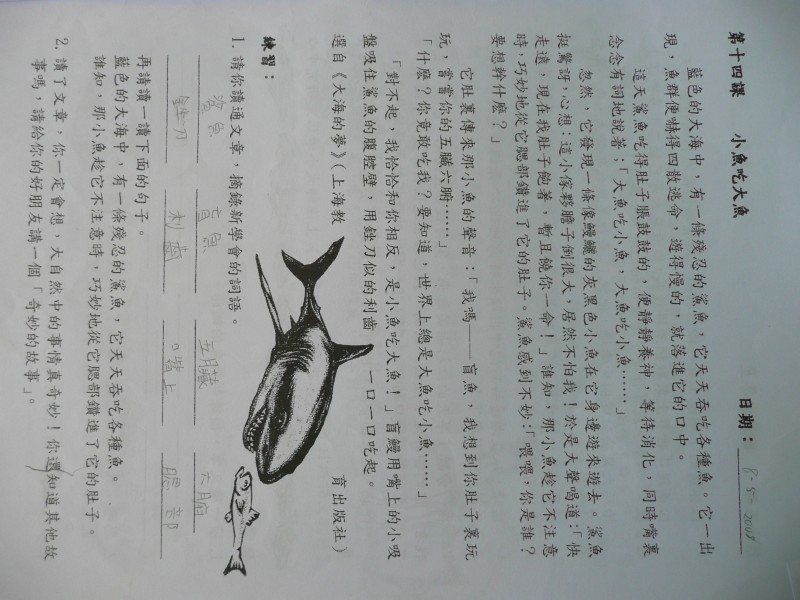 第十四課　小魚吃大魚
日期：8-5-2008
藍色的大海中，有一條殘忍的鯊魚，它天天吞吃各種魚。它一出
現，魚群便嚇得四散逃命，游得慢的，就落進它的口中。
這天鯊魚吃得肚子脹鼓鼓的，便靜靜養神，等待消化，同時嘴裏
念念有詞地說著：「大魚吃小魚，大魚吃小魚……」
忽然，它發現一條像鰻鱺的灰黑色小魚在它身邊遊來遊去。鯊魚
挺驚訝，心想：這小傢夥膽子倒很大，居然不怕我！於是大聲喝道：「快
走遠，現在我肚子飽著，暫且饒你一命！」誰知，那小魚趁它不注意
時，巧妙地從它腮部鑽進了它的肚子。鯊魚感到不妙：「喂喂，你是誰？
要想幹什麼？」
它肚裏傳來那小魚的聲音：「我嗎——盲魚，我想到你肚子裏玩
玩，嘗嘗你的五臟六腑……」
「什麼？你竟敢吃我？要知道，世界上總是大魚吃小魚……」
「對不起，我恰恰和你相反，是小魚吃大魚！」盲鰻用嘴上的小吸
盤吸住鯊魚的腹腔壁，用銼刀似的利齒　一口一口吃起。
選自《大海的夢》（上海教　育出版社）
練習：
1. 請你讀通文章，摘錄新學會的詞語。
鯊魚　盲魚　五臟　六腑
銼刀　利齒　嘴上　腮部
再請讀一讀下面的句子。
藍色的大海中，有一條殘忍的鯊魚，它天天吞吃各種魚。
誰知，那小魚趁它不注意時，巧妙地從它腮部鑽進了它的肚子。
2. 讀了文章，你一定會想，大自然中的事情真奇妙！你還知道其他故
事嗎，請給你的好朋友講一個「奇妙的故事」。